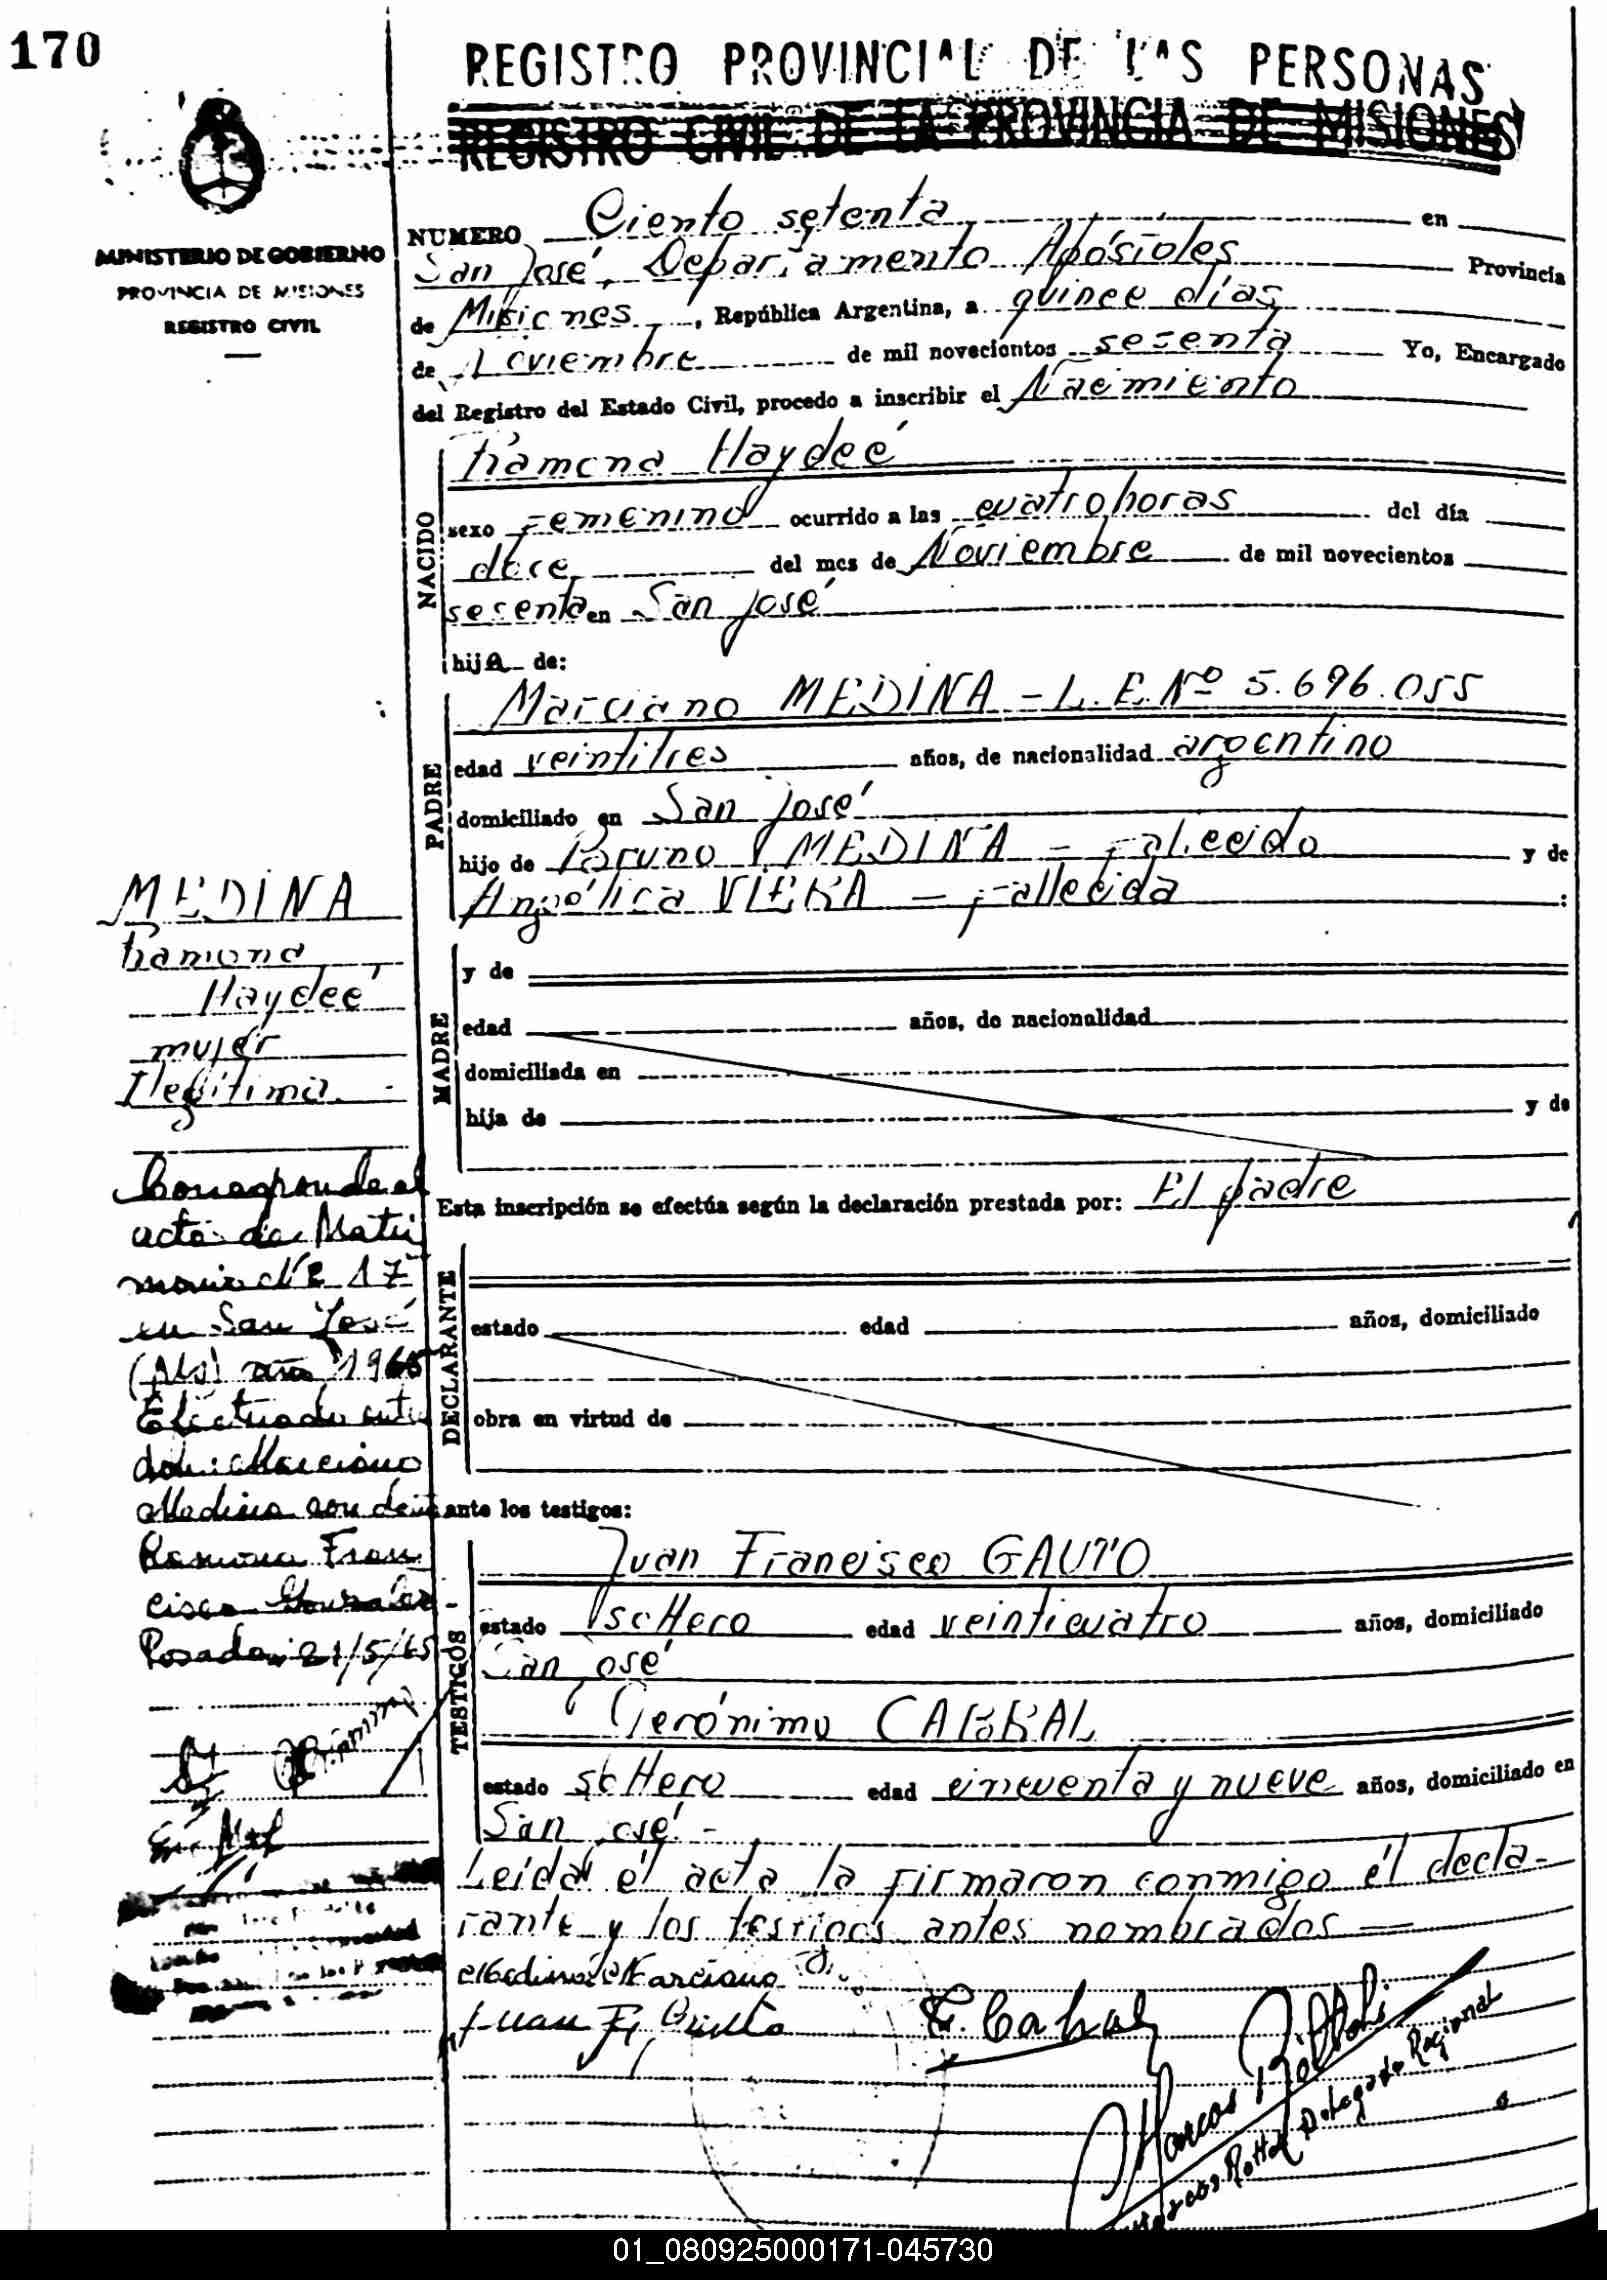 170
REGISTRO PROVINCIAL DE LAS PERSONAS
REGISTRO CIVIL DE LA PROVINCIA DE MISIONES
MINISTERIO DE GOBIERNO
PROVINCIA DE MISIONES
REGISTRO CIVIL
NUMERO Ciento setenta en
San José, Departamento Apóstoles Provincia
de Misiones, República Argentina, a quince días
de Noviembre de mil novecientos sesenta Yo, Encargado
del Registro del Estado Civil, procedo a inscribir el Nacimiento
NACIDO
Ramona Haydeé
sexo Femenino ocurrido a las cuatro horas del día
doce del mes de Noviembre de mil novecientos
sesenta en San José
hija de:
PADRE
Marciano MEDINA - L.E. Nº 5.696.055
edad veintitres años, de nacionalidad argentino
domiciliado en San José
hijo de Bruno MEDINA - Fallecido y de
Angélica VIERA - Fallecida :
MEDINA
Ramona
Haydeé
mujer
Ilegítima.-
MADRE
y de
edad años, de nacionalidad
domiciliada en
hija de y de
Esta inscripción se efectúa según la declaración prestada por: El padre
Corresponde al
acta de Matri
monio Nº 17
en San José
(Ms) año 1965
Efectuado entre
don: Marciano
Medina con doña
Ramona Fran
cisca Gonzalez-
Posadas 21/5/65
DECLARANTE
estado edad años, domiciliado
obra en virtud de
ante los testigos:
TESTIGOS
Juan Francisco GAUTO
estado soltero edad veinticuatro años, domiciliado
San José
Gerónimo CABRAL
estado soltero edad cincuenta y nueve años, domiciliado en
San José.-
Leída él acta la firmaron conmigo él decla-
rante y los testigos antes nombrados —
Medina Marciano
Juan F. Gauto
G. Cabral
Marcos
Delegado Regional
01_080925000171-045730